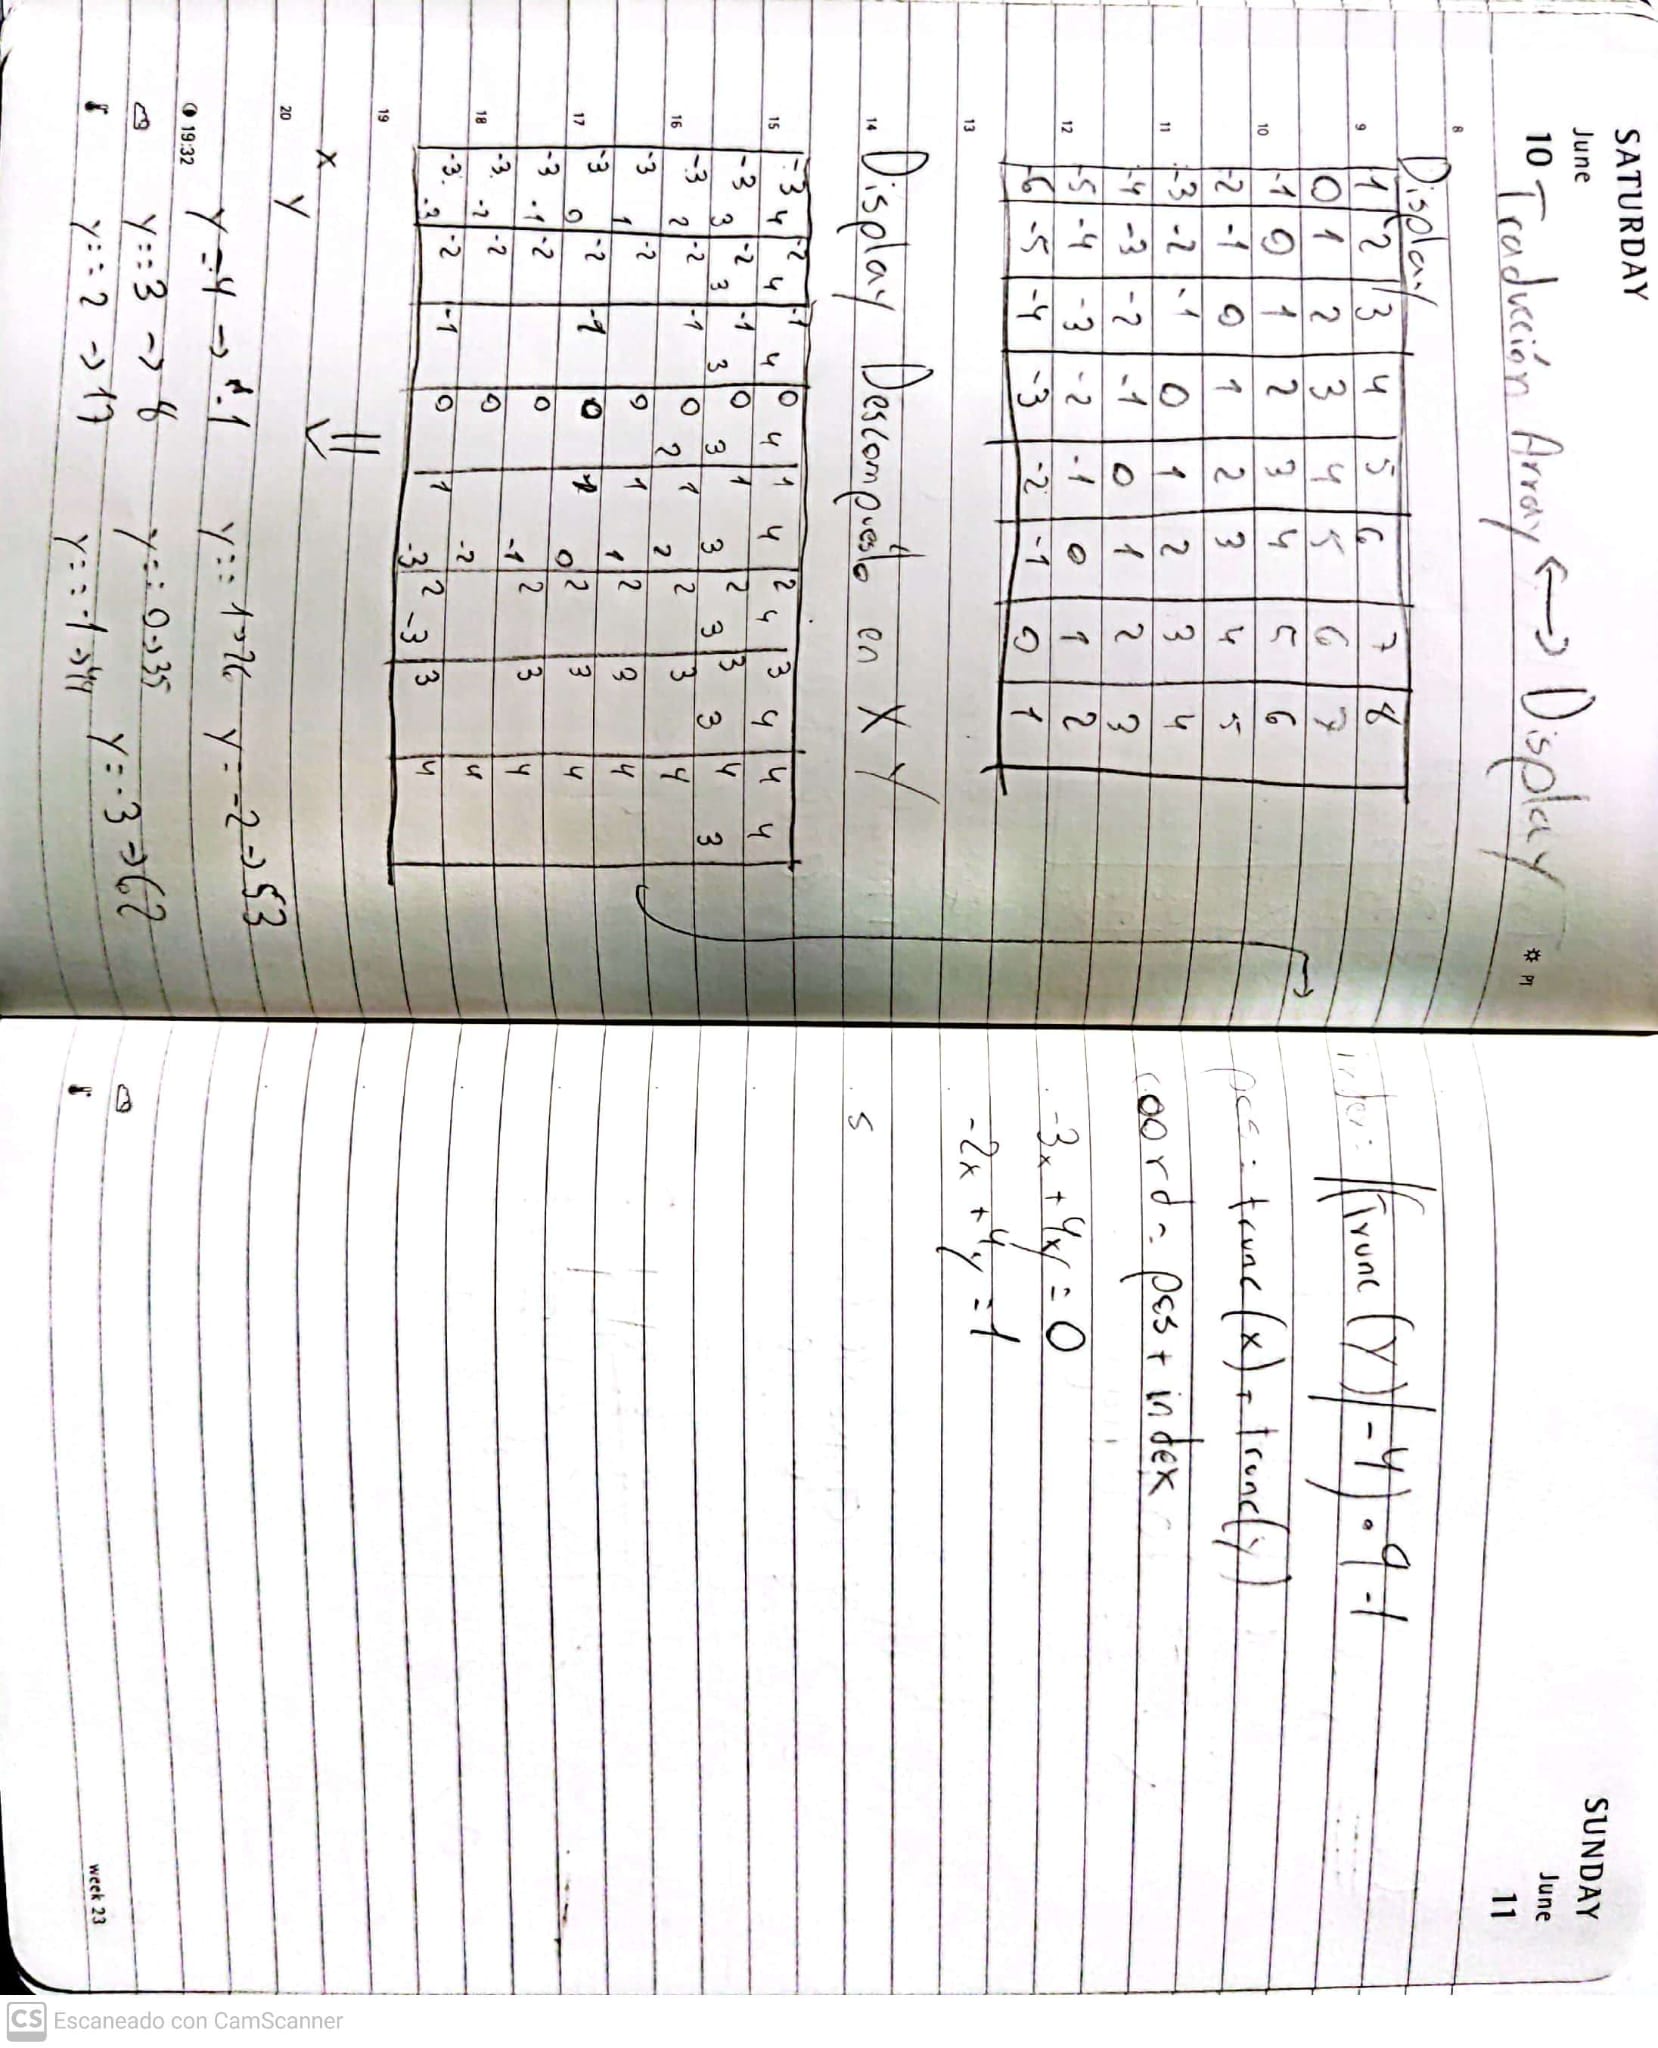 SATURDAY
June
10 Traducción Array <--> Display
PT
8
Display
1 2 3 4 5 6 7 8
9
0 1 2 3 4 5 6 7
-1 0 1 2 3 4 5 6
10
-2 -1 0 1 2 3 4 5
-3 -2 -1 0 1 2 3 4
11
-4 -3 -2 -1 0 1 2 3
-5 -4 -3 -2 -1 0 1 2
12
-6 -5 -4 -3 -2 -1 0 1
13
14 Display Descompuesto en X Y
-3 4 -2 4 -1 4 0 4 1 4 2 4 3 4 4 4
15
-3 3 -2 3 -1 3 0 3 1 3 2 3 3 3 4 3
-3 2 -2 -1 0 2 1 2 2 3 4
16
-3 1 -2 0 1 1 2 3 4
-3 0 -2 -1 0 1 0 2 3 4
17
-3 -1 -2 0 -1 2 3 4
-3. -2 -2 0 -2 4
18
-3. -3 -2 -1 0 1 -3 2 -3 3 4
19
x
y
20
y=4 -> -1 y== 1->26 y= -2->53
19:32
y==3 -> 8 y== 0->35 y=-3->62
y==2 -> 17 y==-1->44
SUNDAY
June
11
index= |(Trunc(y)|-4)·9-1
pos = trunc(x) + trunc(y)
coord = pos + index
-3x + 4y = 0
-2x + 4y = 1
s
week 23
CS Escaneado con CamScanner